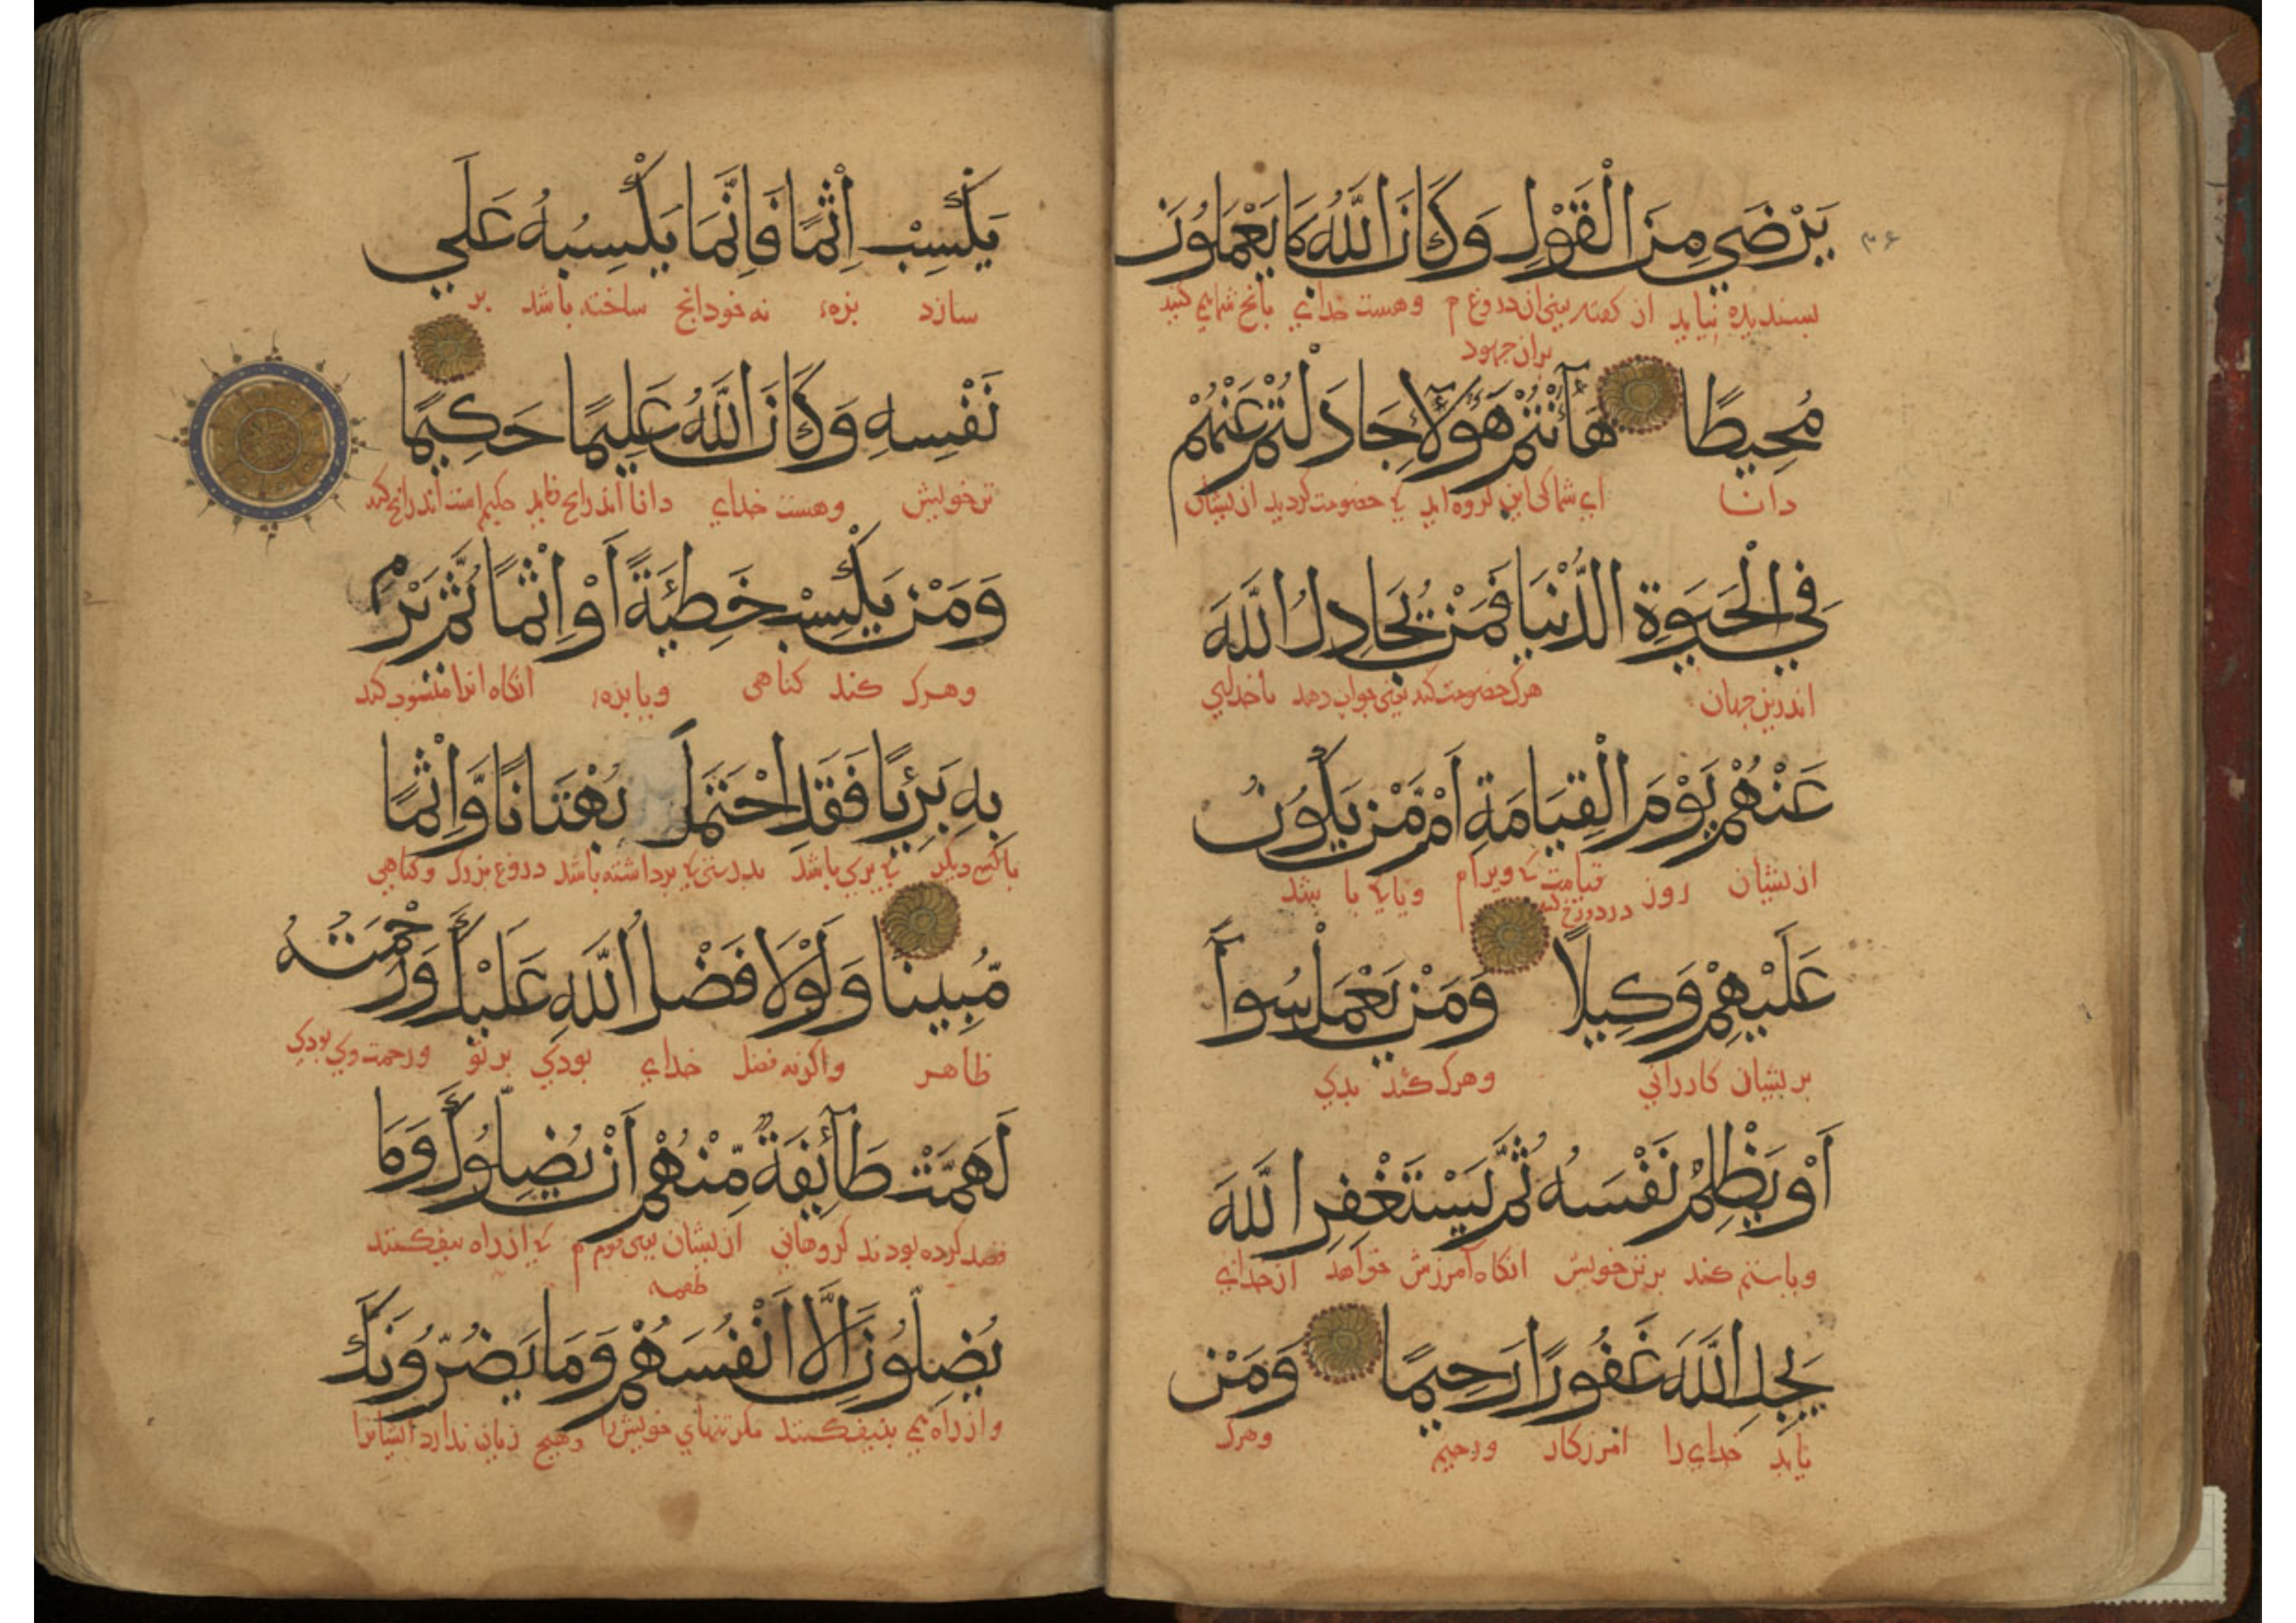 يَرْضَي مِنَ الْقَوْلِ وَكَانَ اللّٰهُ بِمَا يَعْمَلُونَ
بسندیده نیاید از کفته یعنی ان دروغ م وهست خدای بانج شما می کنید
بران جهود
مُحِيطًا هَآ أَنْتُمْ هَؤُلَآءِ جَادَلْتُمْ عَنْهُمْ
دانا ای شما کی این کروه اید کی خصومت کردید ازیشان
فِي الْحَيَوةِ الدُّنْيَا فَمَنْ يُجَادِلُ اللَّهَ
اندرین جهان هرک خصومت کند یعنی جواب دهد با خدای
عَنْهُمْ يَوْمَ الْقِيَامَةِ اَمْ مَّنْ يَكُونُ
ازیشان روز قیامت ویا کی با یشد
عَلَيْهِمْ وَكِيلًا وَمَنْ يَعْمَلْ سُوآً
بریشان کاررانی وهرک کند بدی
اَوْ يَظْلِمْ نَفْسَهُ ثُمَّ يَسْتَغْفِرِ اللّٰهَ
ویا ستم کند برتن خویش انکاه آمرزش خواهد از خدای
يَجِدِ اللَّهَ غَفُورًا رَحِيمًا وَمَنْ
یابد خدای را امرزکار ورحیم وهرک
يَكْسِبْ اِثْمًا فَاِنَّمَا يَكْسِبُهُ عَلَي
سازد بزه نه خود انج ساخته باشد بر
نَفْسِهِ وَكَانَ اللَّهُ عَلِيمًا حَكِيمًا
تن خویش وهست خدای دانا اندرانج حکیم است اندرانج کند
وَمَنْ يَكْسِبْ خَطِئَةً اَوْ اِثْمًا ثُمَّ يَرْمِ
وهرک کند کناهی ویا بزه انکاه انرا منسوب کند
بِهِ بَرِئًا فَقَدِ احْتَمَلَ بُهْتَانًا وَّاِثْمًا
با کسی دیکر کی بری باشد بدرستی کی برداشته باشد دروغ بزرک وکناهی
مُّبِينًا وَلَوْلَا فَضْلُ اللَّهِ عَلَيْكَ وَرَحْمَتُهُ
ظاهر واکرنه فضل خدای بودی برتو ورحمت وی بودی
لَهَمَّتْ طَآئِفَةٌ مِّنْهُمْ اَنْ يُضِلُّوكَ وَمَا
قصد کرده بودند کروهانی ازیشان یعنی قوم کی از راه بیفکنند
طعمه
يُضِلُّونَ اِلَّا اَنْفُسَهُمْ وَمَا يَضُرُّونَكَ
واز راه می بنیفکنند مکر تنهای خویش را وهیچ زیان ندارد ایشانرا